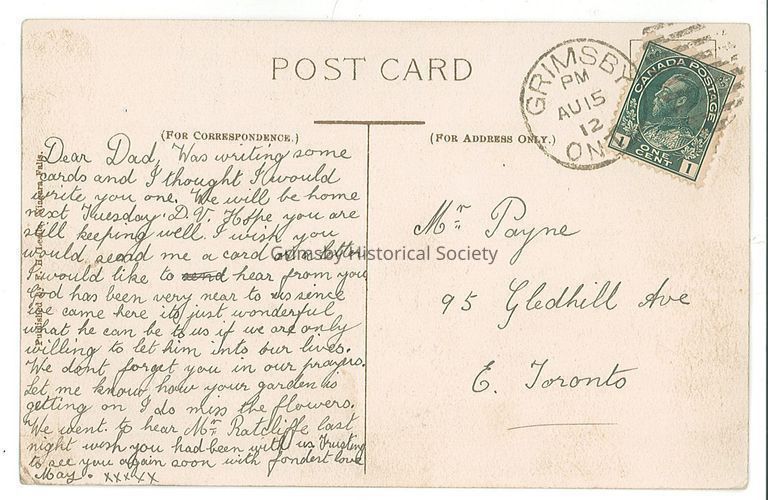 POST CARD
GRIMSBY
PM
AU 15
12
ONT
CANADA POSTAGE
1 ONE CENT 1
(FOR CORRESPONDENCE.)
(FOR ADDRESS ONLY.)
Dear Dad, Was writing some
cards and I thought I would
write you one. We will be home
next Tuesday. D.V. Hope you are
still keeping well. I wish you
would send me a card or
I would like to send hear from you
God has been very near to us since
we came here its just wonderful
what he can be to us if we are only
willing to let him into our lives.
We dont forget you in our prayers.
Let me know how your garden is
getting on I do miss the flowers.
We went to hear Mr Ratcliffe last
night wish you had been with us Trusting
to see you again soon with fondest love
May. xxxxx
Mr Payne
95 Gledhill Ave
E. Toronto
Grimsby Historical Society
Published by Niagara Falls.